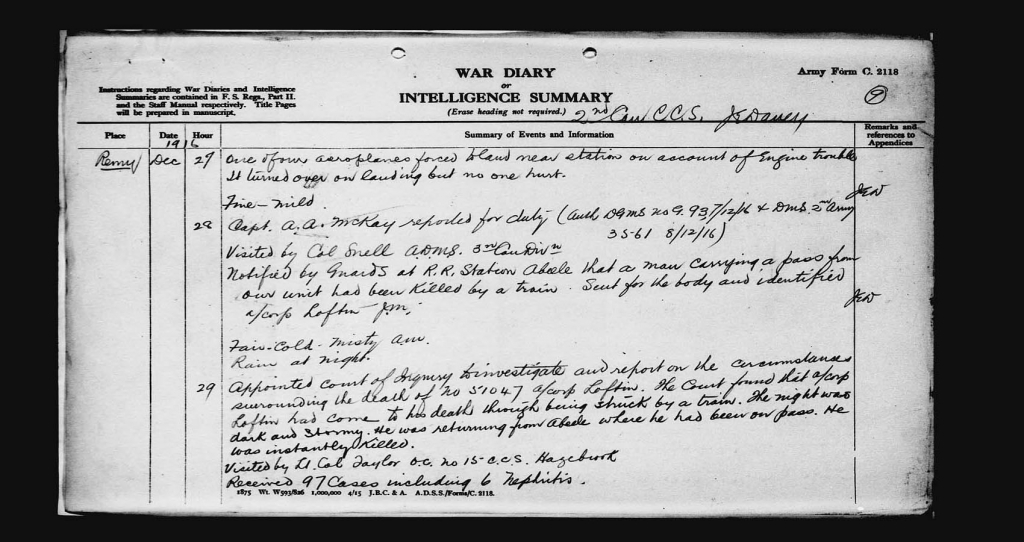 WAR DIARY
or
INTELLIGENCE SUMMARY
(Erase heading not required.)
Army Form C. 2118
Instructions regarding War Diaries and Intelligence
Summaries are contained in F. S. Regs., Part II.
and the Staff Manual respectively. Title Pages
will be prepared in manuscript.
9
2nd Can C.C.S. JEDavey
Place
Date
1916
Hour
Summary of Events and Information
Remarks and
references to
Appendices
Remy Dec 27 One of our aeroplanes forced to land near station on account of Engine trouble
It turned over on landing but no one hurt.
Fine - mild. JED
28 Capt. A.A. McKay reported for duty (Auth DGMS no G. 93 7/12/16 & DMS. 2nd Army
35-61 8/12/16)
Visited by Col Snell ADMS. 3rd Can Divn
Notified by Guards at R.R. Station Abeele that a man carrying a pass from
our unit had been killed by a train. Sent for the body and identified
a/corp Loftin J.M. JED
Fair - Cold - misty am.
Rain at night.
29 Appointed court of Inquiry to investigate and report on the circumstances
surrounding the death of No 51047 a/corp Loftin. The Court found that a/corp
Loftin had come to his death through being struck by a train. The night was
dark and stormy. He was returning from Abeele where he had been on pass. He
was instantly killed.
Visited by Lt. Col Taylor O.C. No 15 C.C.S. Hazebrook
Received 97 Cases including 6 Nephritis.
1875 Wt. W593/826 1,000,000 4/15 J.B.C. & A. A.D.S.S./Forms/C. 2118.